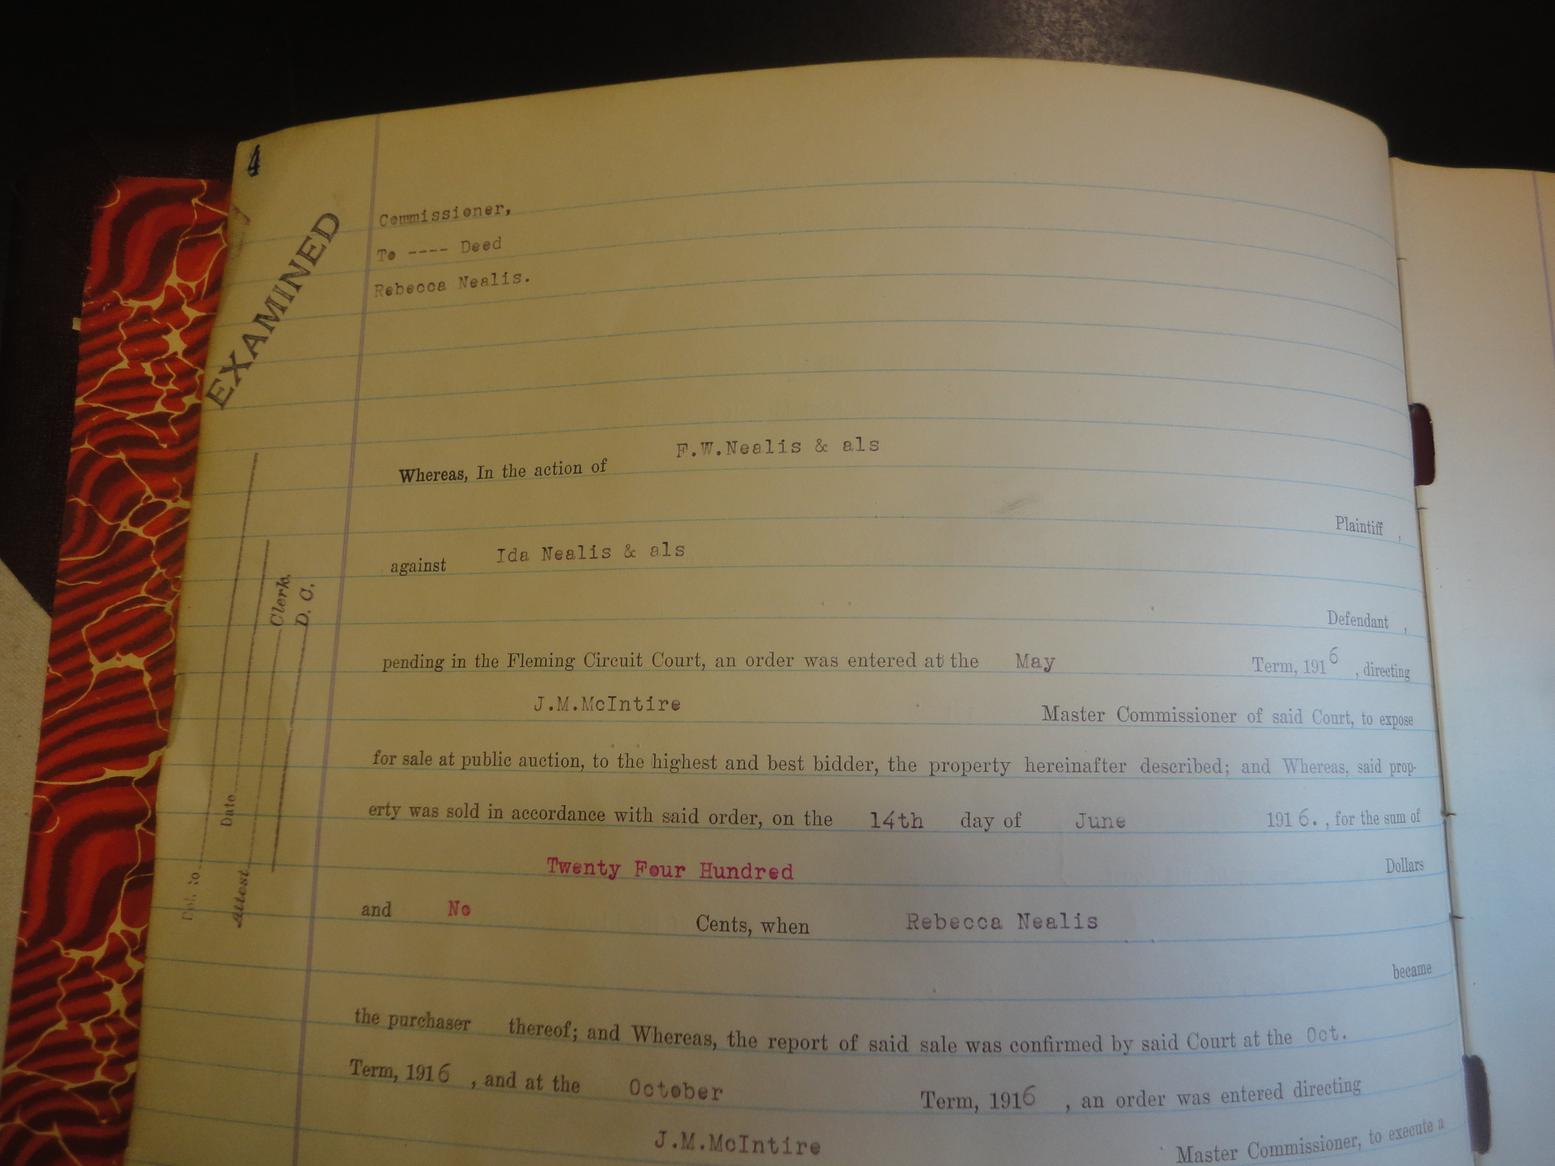 4
EXAMINED
Commissioner,
To ---- Deed
Rebecca Nealis.
Whereas, In the action of F.W.Nealis & als
Plaintiff ,
against Ida Nealis & als
Defendant ,
pending in the Fleming Circuit Court, an order was entered at the May Term, 1916 , directing
J.M.McIntire Master Commissioner of said Court, to expose
for sale at public auction, to the highest and best bidder, the property hereinafter described; and Whereas, said prop-
erty was sold in accordance with said order, on the 14th day of June 1916. , for the sum of
Twenty Four Hundred Dollars
and No Cents, when Rebecca Nealis
became
the purchaser thereof; and Whereas, the report of said sale was confirmed by said Court at the Oct.
Term, 1916 , and at the October Term, 1916 , an order was entered directing
J.M.McIntire Master Commissioner, to execute a
Date
Attest
Clerk.
D. C.